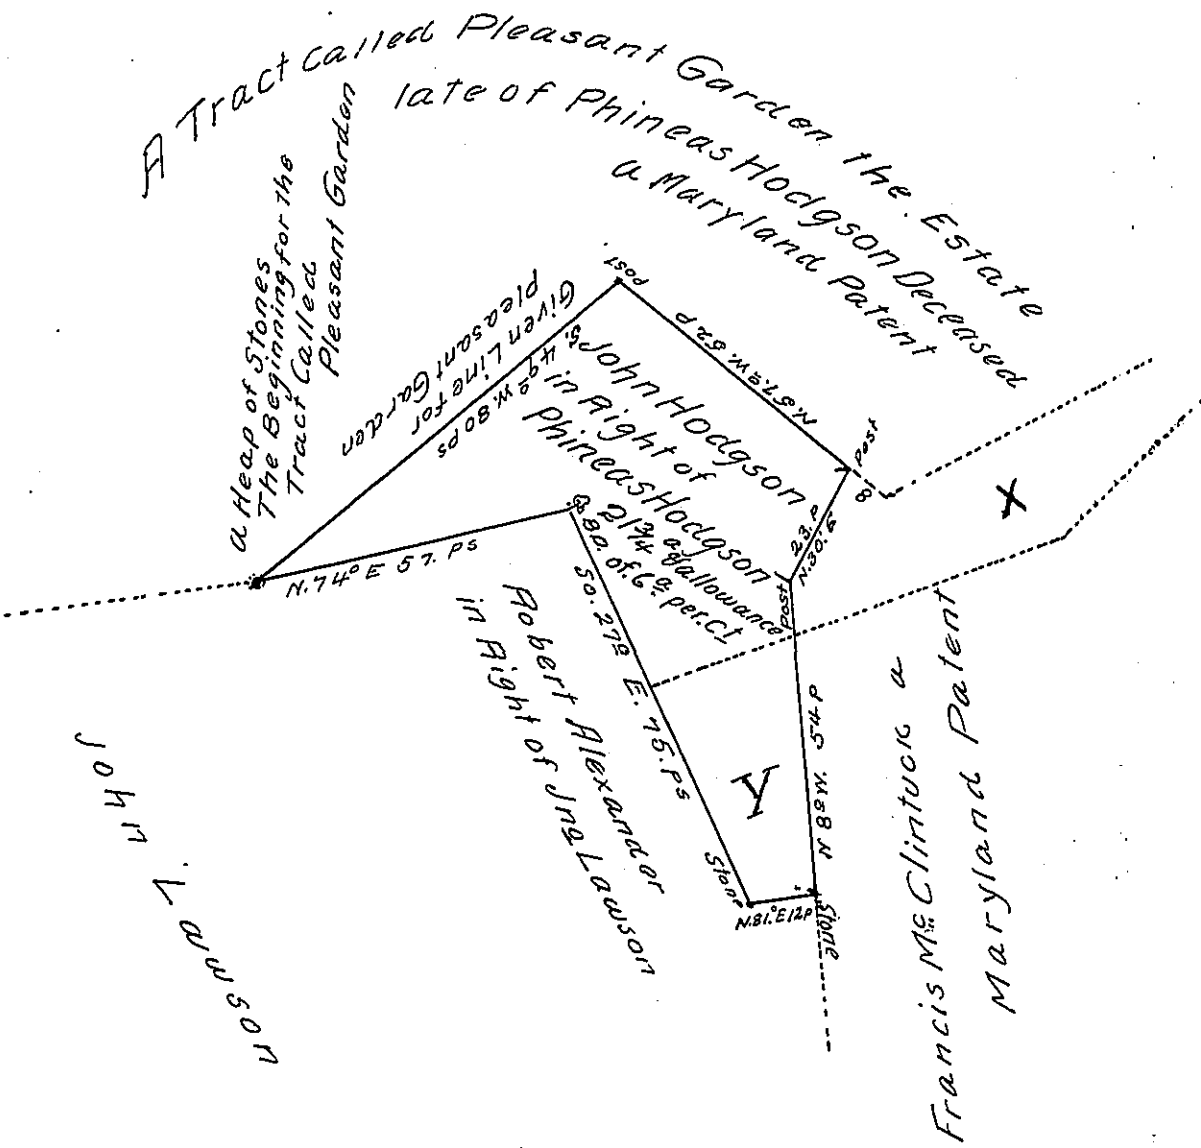 A Tract called Pleasant Garden the Estate
late of Phineas Hodgson Deceased
a Maryland Patent
a Heap of Stones
The Beginning for the
Tract Called
Pleasant Garden
Given Line for
pleasant Garden
S. 49° W. 80 ps
post
N. 57° W. 52 P
post
8
X
John Hodgson
in Right of
Phineas Hodgson
21 3/4 a & allowance
of 6 a per. Ct
23. P
N. 30° E
post
N. 74° E 57. Ps
80.
So. 27° E. 75. Ps
Robert Alexander
in Right of Jno Lawson
N 8° W. 54 P
Y
Stone
N. 81.° E 12 P
Stone
John Lawson
Francis McClintuck a
Maryland Patent